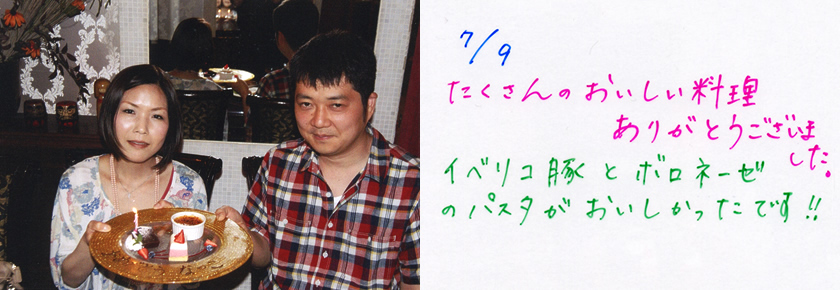 7/9
たくさんのおいしい料理
ありがとうございま
した。
イベリコ豚とボロネーゼ
のパスタがおいしかったです!!